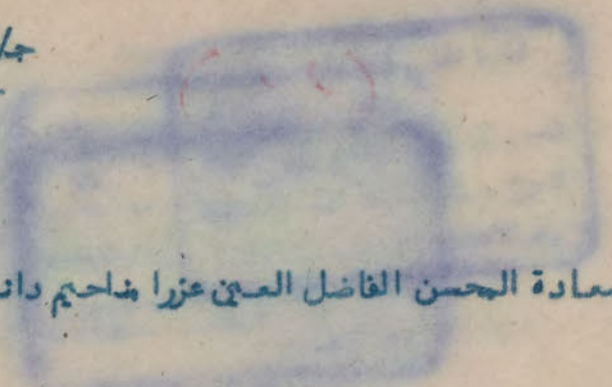 جا
سعادة المحسن الفاضل العين عزرا مناحيم دان